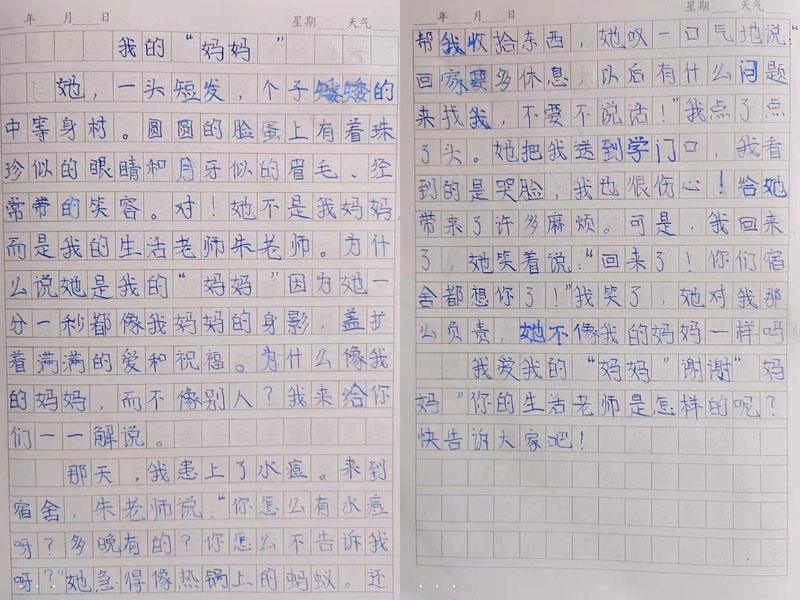 年 月 日 星期 天气
我的“妈妈”
她，一头短发，个子矮矮的
中等身材。圆圆的脸蛋上有着珠
珍似的眼睛和月牙似的眉毛、经
常带的笑容。对！她不是我妈妈
而是我的生活老师朱老师。为什
么说她是我的“妈妈”因为她一
分一秒都像我妈妈的身影，盖扩
着满满的爱和祝福。为什么像我
的妈妈，而不像别人？我来给你
们一一解说。
那天，我患上了水痘。来到
宿舍，朱老师说：“你怎么有水痘
呀？多晚有的？你怎么不告诉我
呀？”她急得像热锅上的蚂蚁。还
年 月 日 星期 天气
帮我收拾东西，她叹一口气地说：“
回家要多休息，以后有什么问题
来找我，不要不说话！”我点了点
了头。她把我送到学门口，我看
到的是哭脸，我也很伤心！给她
带来了许多麻烦。可是，我回来
了，她笑着说：“回来了！你们宿
舍都想你了！”我笑了，她对我那
么负责，她不像我的妈妈一样吗
我爱我的“妈妈”谢谢“妈
妈”你的生活老师是怎样的呢？
快告诉大家吧！